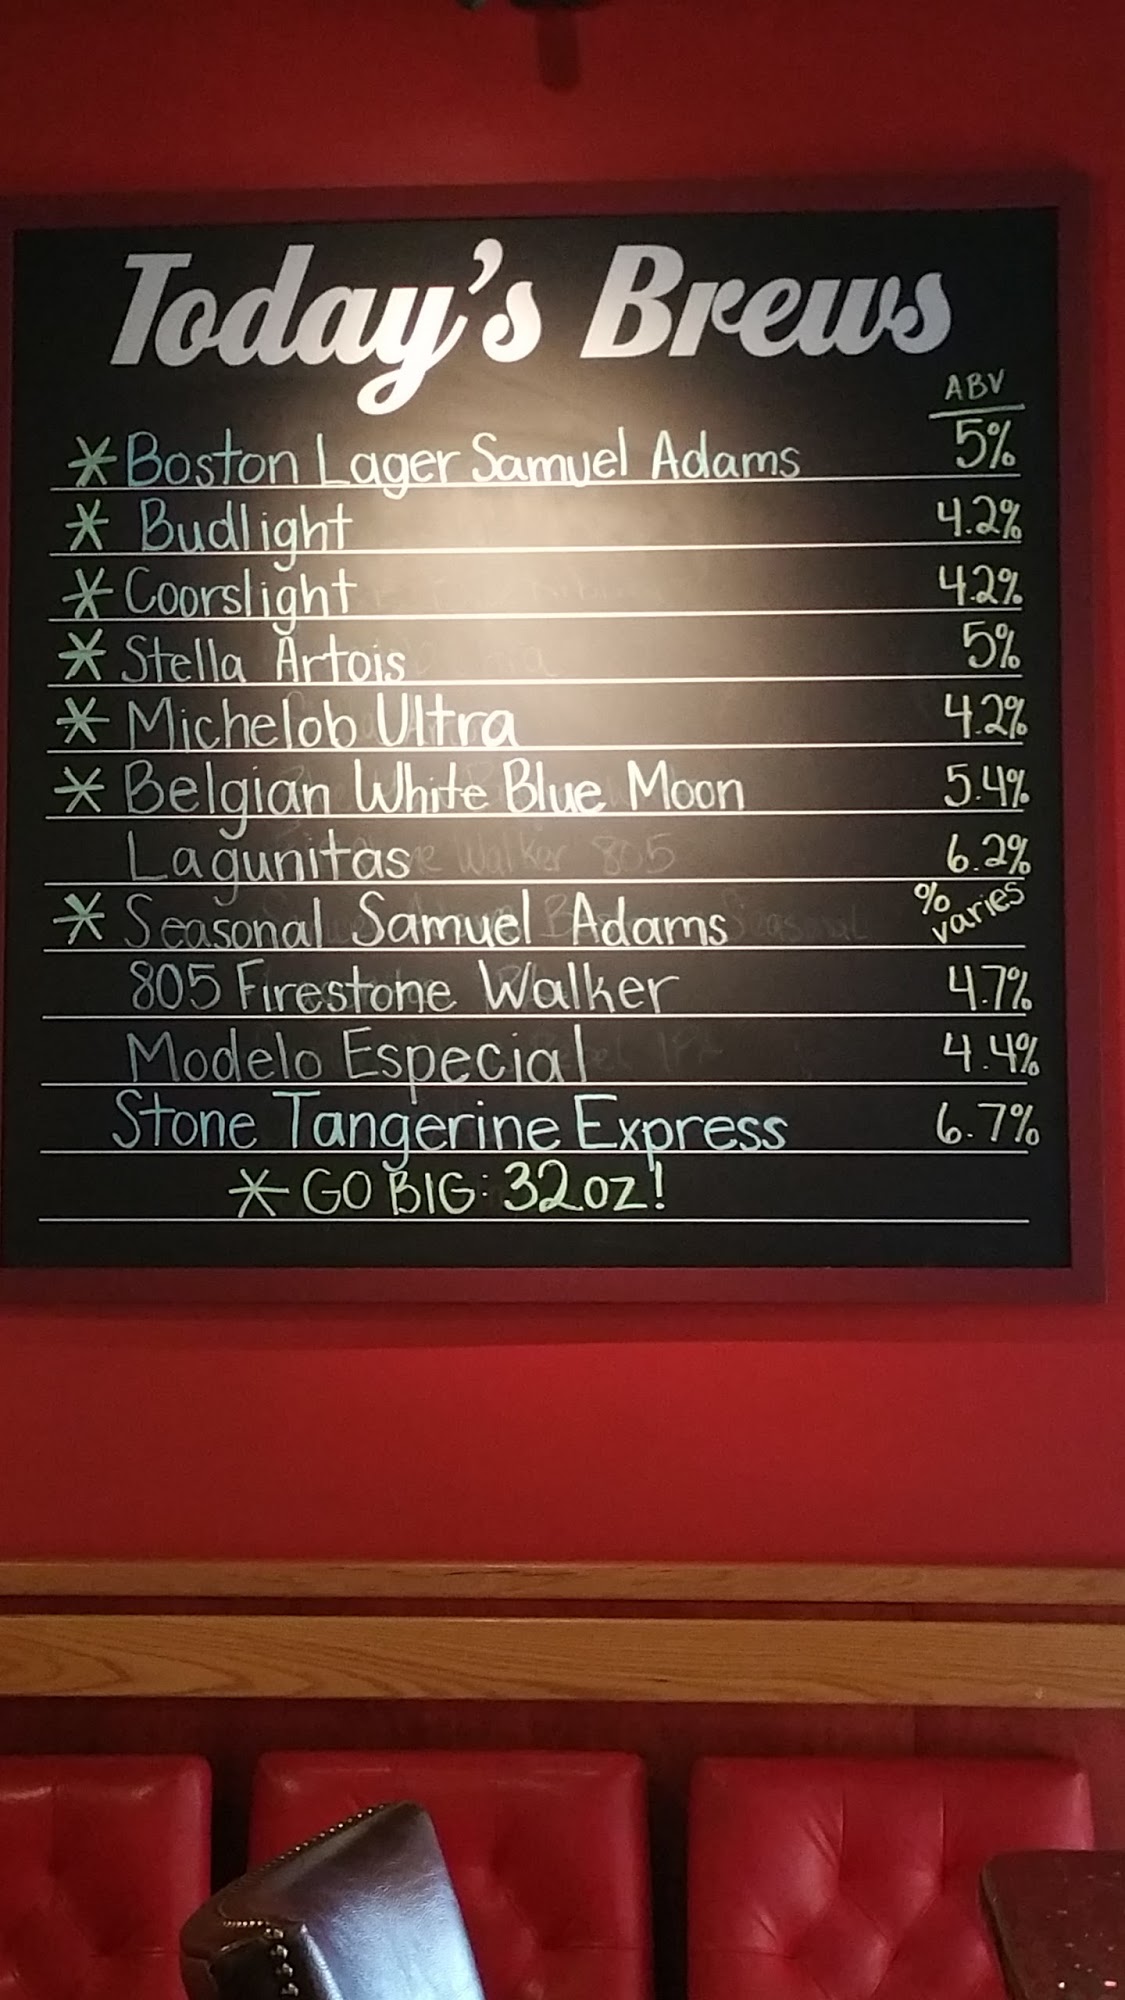 Today's Brews
ABV
* Boston Lager Samuel Adams 5%
* Budlight 4.2%
* Coorslight 4.2%
* Stella Artois 5%
* Michelob Ultra 4.2%
* Belgian White Blue Moon 5.4%
Lagunitas 6.2%
* Seasonal Samuel Adams % varies
805 Firestone Walker 4.7%
Modelo Especial 4.4%
Stone Tangerine Express 6.7%
* GO BIG: 32oz!